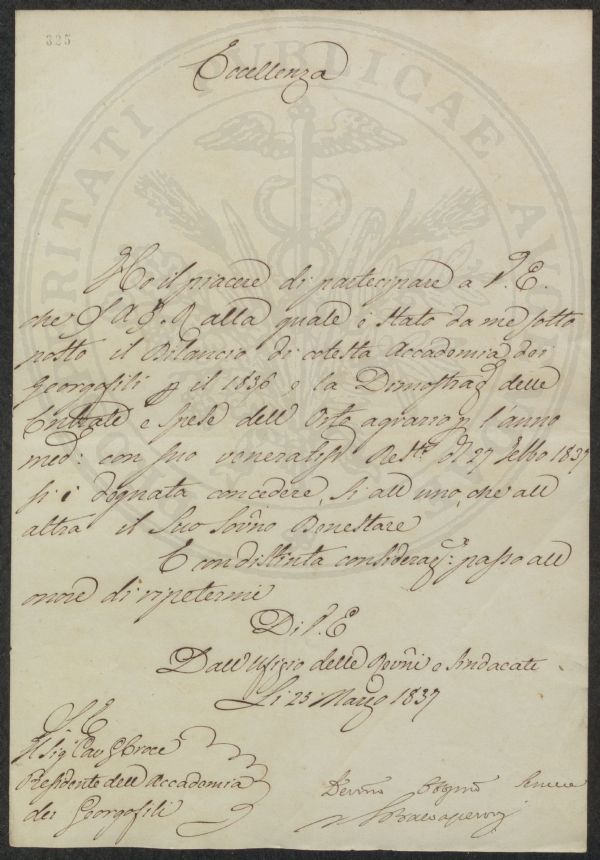 325
Eccellenza
Ho il piacere di partecipare a V. E.
che S A J. R alla quale è stato da me sotto
posto il Bilancio di cotesta Accademia dei
Georgofili p il 1836 e la Dimostraz delle
Entrate e spese dell Orto agrario p l'anno
med: con suo veneratiss Resto del 27 Febbo 1837
si è degnata concedere, sì all uno, che all
altra il Suo Sovno Benestare
E con distinta consideraze: passo all
onore di ripetermi
Di V. E
Dall'Ufizio delle Revni e Sindacati
Li 23 Marzo 1837
S E
Il Sigr Cav Groce
Presidente dell'Accademia
dei Georgofili
Devmo Obgmo